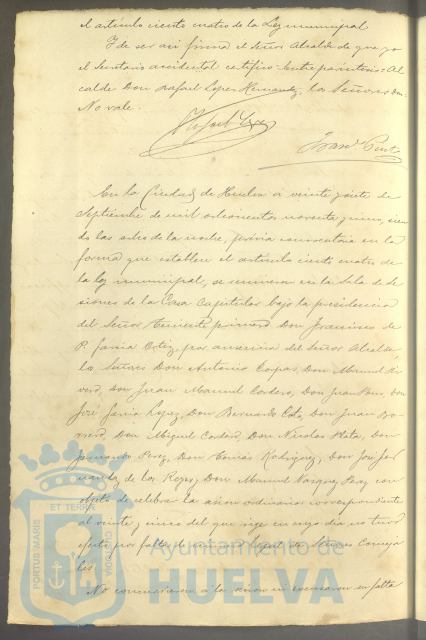 el artículo ciento cuatro de la Ley municipal
Y de ser así firma el Señor Alcalde de que yo
el Secretario accidental certifico = Entre paréntesis = Al
calde Don Rafael López Hernandez, los Señores Don =
No vale.
Rafael López
Fran.co
En la Ciudad de Huelva á veinte y siete de
Septiembre de mil ochocientos noventa y uno, sien
do las ocho de la noche, prévia convocatoria en la
forma que establece el artículo ciento cuatro de
la ley municipal, se reunieron en la Sala de se
siones de la Casa Capitular bajo la presidencia
del Señor Teniente primero Don Francisco de
P. García Ortiz, por ausencia del Señor Alcalde,
los Señores Don Antonio Don Manuel
Don Juan Manuel Cordero, Don Juan Don
José García López, Don Bernardo Don Juan Ro
mero, Don Miguel Cordero, Don Nicolas Mata, Don
Fernando Perez, Don Tomás Rodriguez, Don José
de los Reyes, Don Manuel Vazquez Perez con
objeto de celebrar la sesion ordinaria correspondiente
al veinte y cinco del que rige cuyo dia no tuvo
efecto por falta de Señores Conceja
les.
No concurrieron á la sesion ni escusaron su falta
PORTUS MARIS
ET TERRÆ
CUSTODIA
Ayuntamiento de
HUELVA